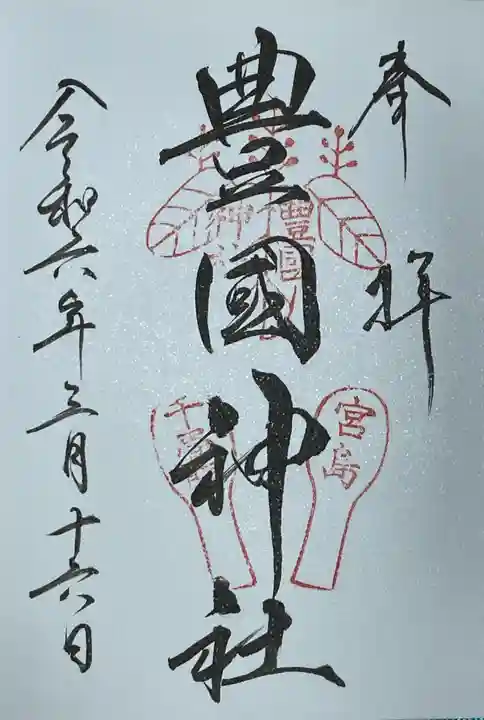 奉拝
豊國神社
令和六年三月十六日
豐國
神社
宮島
千畳